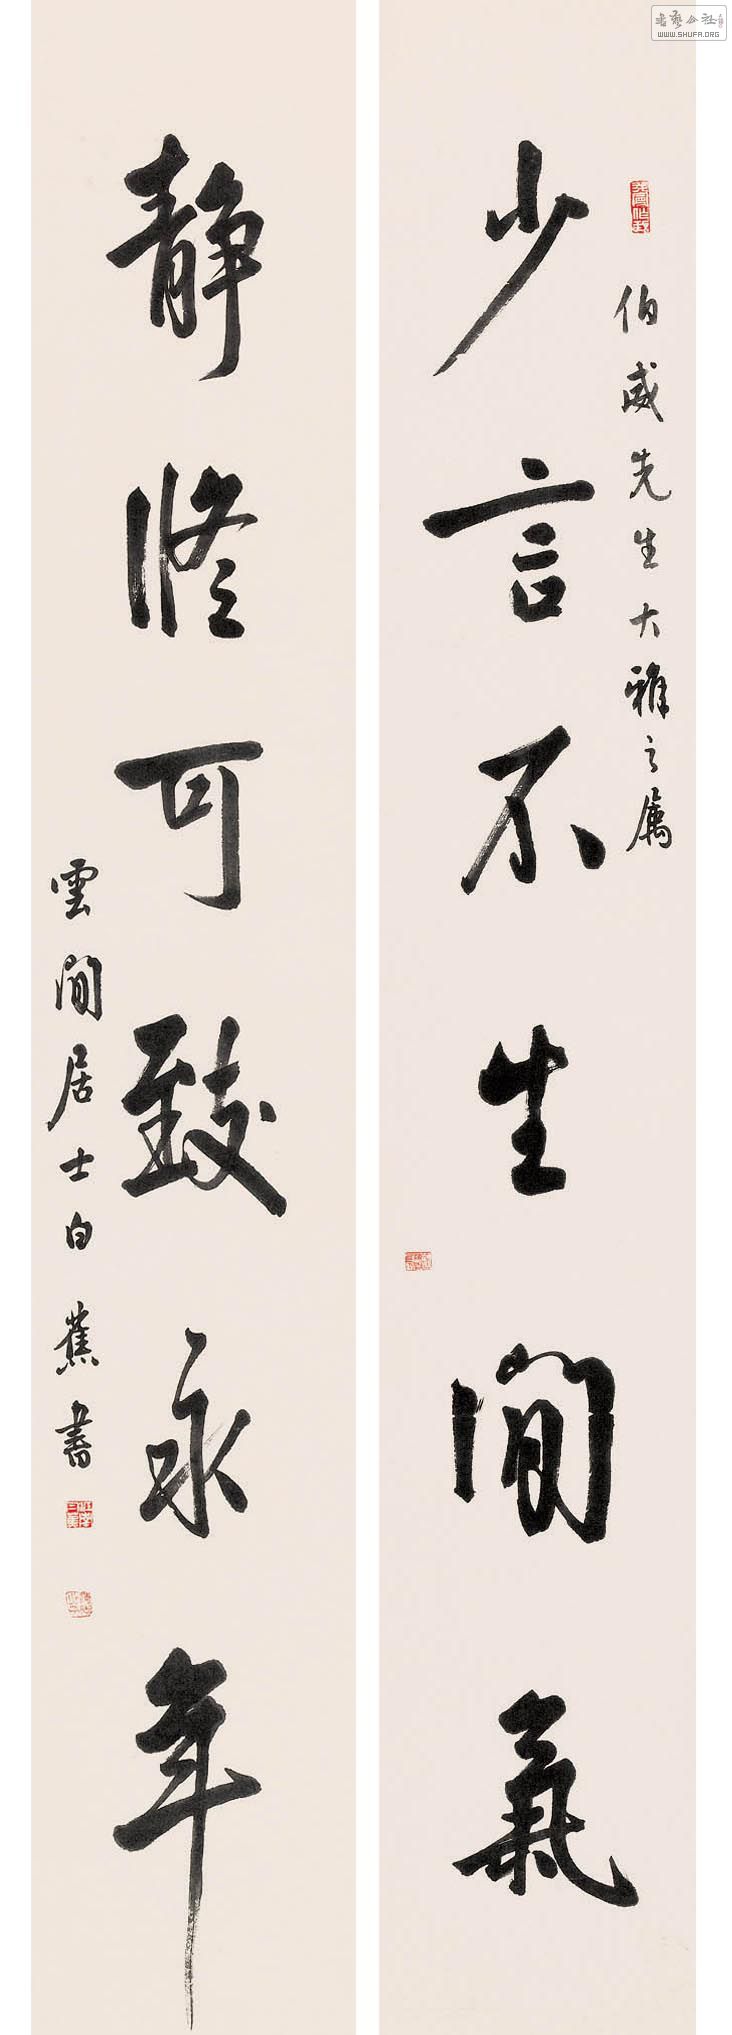 伯威先生大雅之屬
少言不生閒氣
靜修可致永年
雲間居士白蕉書
書藝公社
WWW.SHUFA.ORG